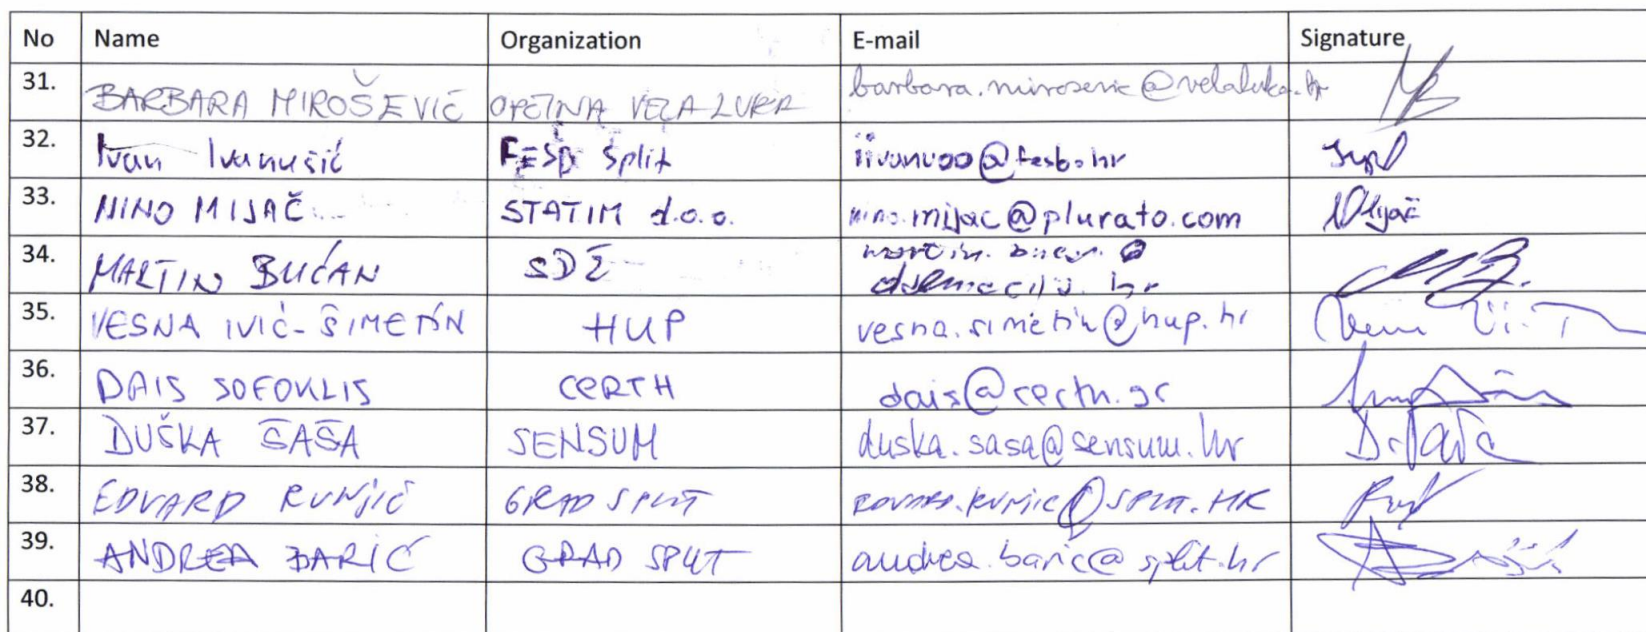 No Name Organization E-mail Signature
31. BARBARA MIROŠEVIĆ OPĆINA VELA LUKA barbara.mirosevic@velaluka.hr
32. Ivan Ivanušić FESB Split iivanu00@fesb.hr
33. NINO MIJAČ STATIM d.o.o. nino.mijac@plurato.com NMijač
34. MARTIN BUĆAN SDŽ martin.bucan@
dalmacija.hr
35. VESNA IVIĆ-ŠIMETIN HUP vesna.simetin@hup.hr
36. DAIS SOFOKLIS CERTH dais@certh.gr
37. DUŠKA ŠAŠA SENSUM duska.sasa@sensum.hr D.Šaša
38. EDVARD RUNJIĆ GRAD SPLIT EDVARD.RUNJIC@SPLIT.HR
39. ANDREA BARIĆ GRAD SPLIT andrea.baric@split.hr
40.